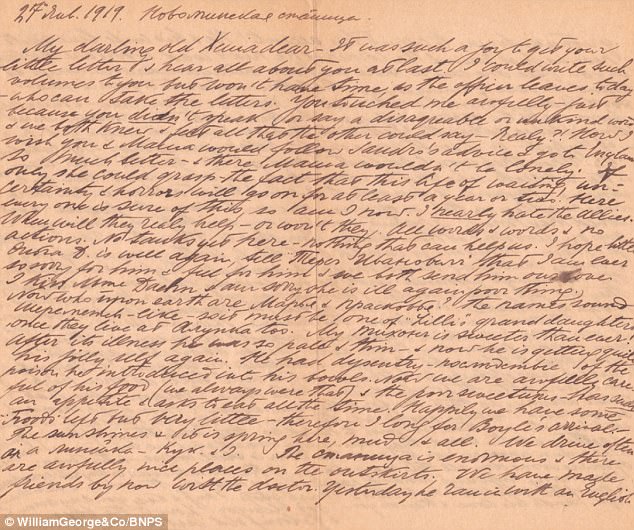 27 Feb. 1919. Новоминская станица.
My darling old Xenia dear – It was such a joy to get your
little letter & hear all about you at last. I could write such
volumes to you but won't have time, as the officer leaves today
– who can take the letters. You touched me awfully – just
because you didn't speak (or say a disagreable or unkind word
& we both knew & felt all that the other could say – Realy?! How I
wish you & Mama would follow Sandro's advice & go to England
So much better – & there Mama wouldn't be lonely. If
only she could grasp the fact that this life of waiting, un-
certainty & horrors will go on for at least a year or two. Here
every one is sure of this, so am I now. I nearly hate the Allies.
When will they realy help – or won't they! All words & words & no
actions. No tanks yet here – nothing that can help us. I hope little
D. is well again. Tell that I am ever
so sorry for him & feel for him & we both send him our love
Mme I am sorry she is ill again poor thing.
Now who upon earth are Мария & ? The name sound
– like – so it must be one of Lilli's grand daughters
once they live at too. My is sweeter than ever!
After its illness he was so pale & thin – now he is getting quite
his jolly self again. He had dysentry – of the
poison het introduced into his bowels. Now we are awfully care-
ful of his food (we always were that) & the poor sweetums – has such
an appetite & asks to eat all the time. Happily we have some
Foods left but very little – therefore I long for Boyle's arrival –
The sun shines & it is spring here, mud & all. We drive often
on a . The станица is enormous & there
are awfully nice places on the outskirts. We have made
friends by now with the doctor. Yesterday he an English
© WilliamGeorge&Co/BNPS